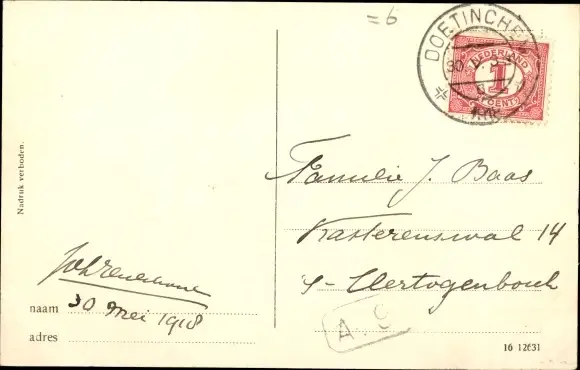 =6
DOETINCHEM
NEDERLAND
1
CENT
Nadruk verboden.
Familie J. Baas
Kasterenswal 14
s-Hertogenbosch
naam
30 Mei 1918
adres
A.S
16 12631